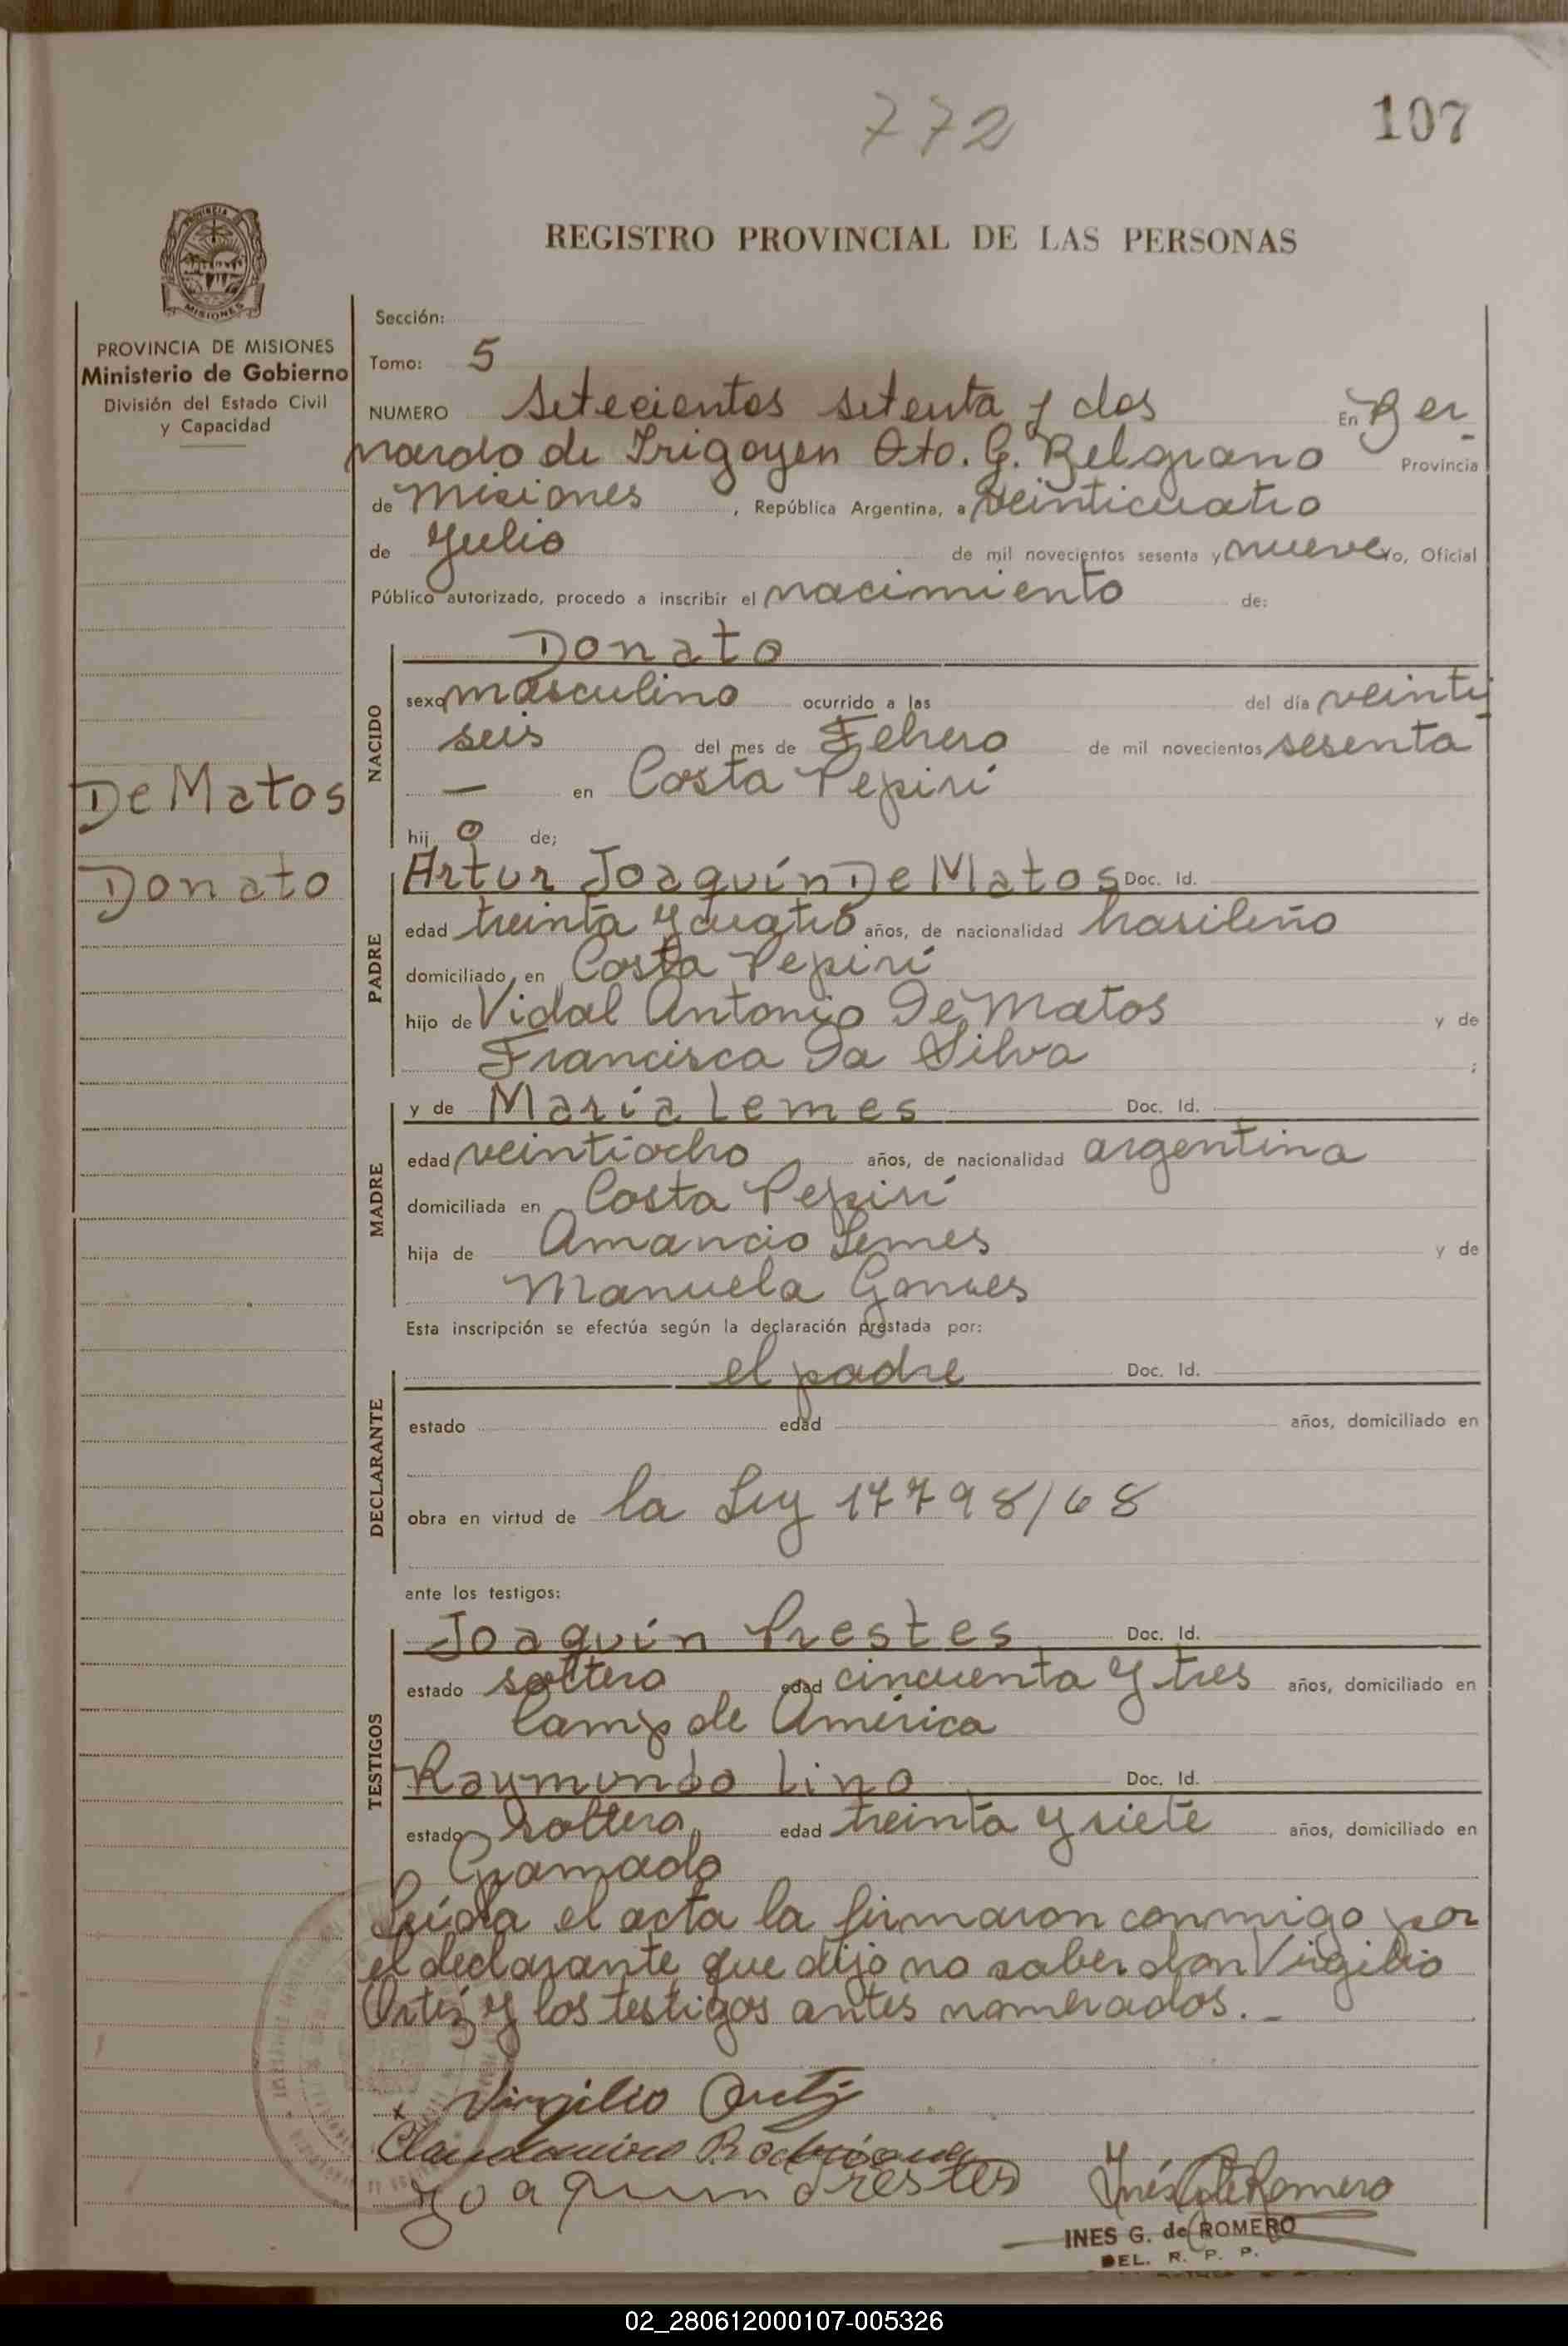 772
107
REGISTRO PROVINCIAL DE LAS PERSONAS
PROVINCIA DE
MISIONES
PROVINCIA DE MISIONES
Ministerio de Gobierno
División del Estado Civil
y Capacidad
De Matos
Donato
Sección:
Tomo: 5
NUMERO Setecientos setenta y dos En Ber-
nardo de Irigoyen Dto. G. Belgrano Provincia
de Misiones, República Argentina, a veinticuatro
de Julio de mil novecientos sesenta y nueve yo, Oficial
Público autorizado, procedo a inscribir el nacimiento de:
NACIDO
Donato
sexo masculino ocurrido a las del día veinti-
seis del mes de Febrero de mil novecientos sesenta
— en Costa Pepirí
hij o de;
PADRE
Artur Joaquín De Matos Doc. Id.
edad treinta y cuatro años, de nacionalidad brasileño
domiciliado en Costa Pepirí
hijo de Vidal Antonio De Matos y de
Francisca Da Silva ;
MADRE
y de María Lemes Doc. Id.
edad veintiocho años, de nacionalidad argentina
domiciliada en Costa Pepirí
hija de Amancio Lemes y de
Manuela
Esta inscripción se efectúa según la declaración prestada por:
DECLARANTE
el padre Doc. Id.
estado edad años, domiciliado en
obra en virtud de la Ley 17798/68
ante los testigos:
TESTIGOS
Joaquín Prestes Doc. Id.
estado soltero edad cincuenta y tres años, domiciliado en
Camp de América
Raymundo Lino Doc. Id.
estado soltero edad treinta y siete años, domiciliado en
Gramado
Leída el acta la firmaron conmigo por
el declarante que dijo no saber don Virgilio
Ortíz y los testigos antes nombrados.-
x Virgilio Ortiz
Joaquim Prestes
Inés G de Romero
INES G. de ROMERO
DEL. R. P. P.
02_280612000107-005326